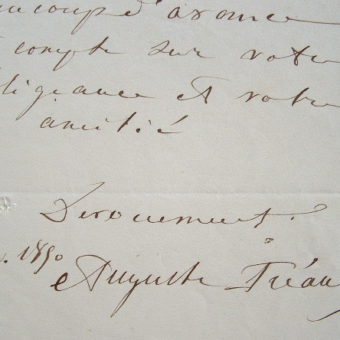 aucoup d'avance
compte sur votre
ligeance et votre
amitié
Devouement.
. 1890
Auguste Tréau